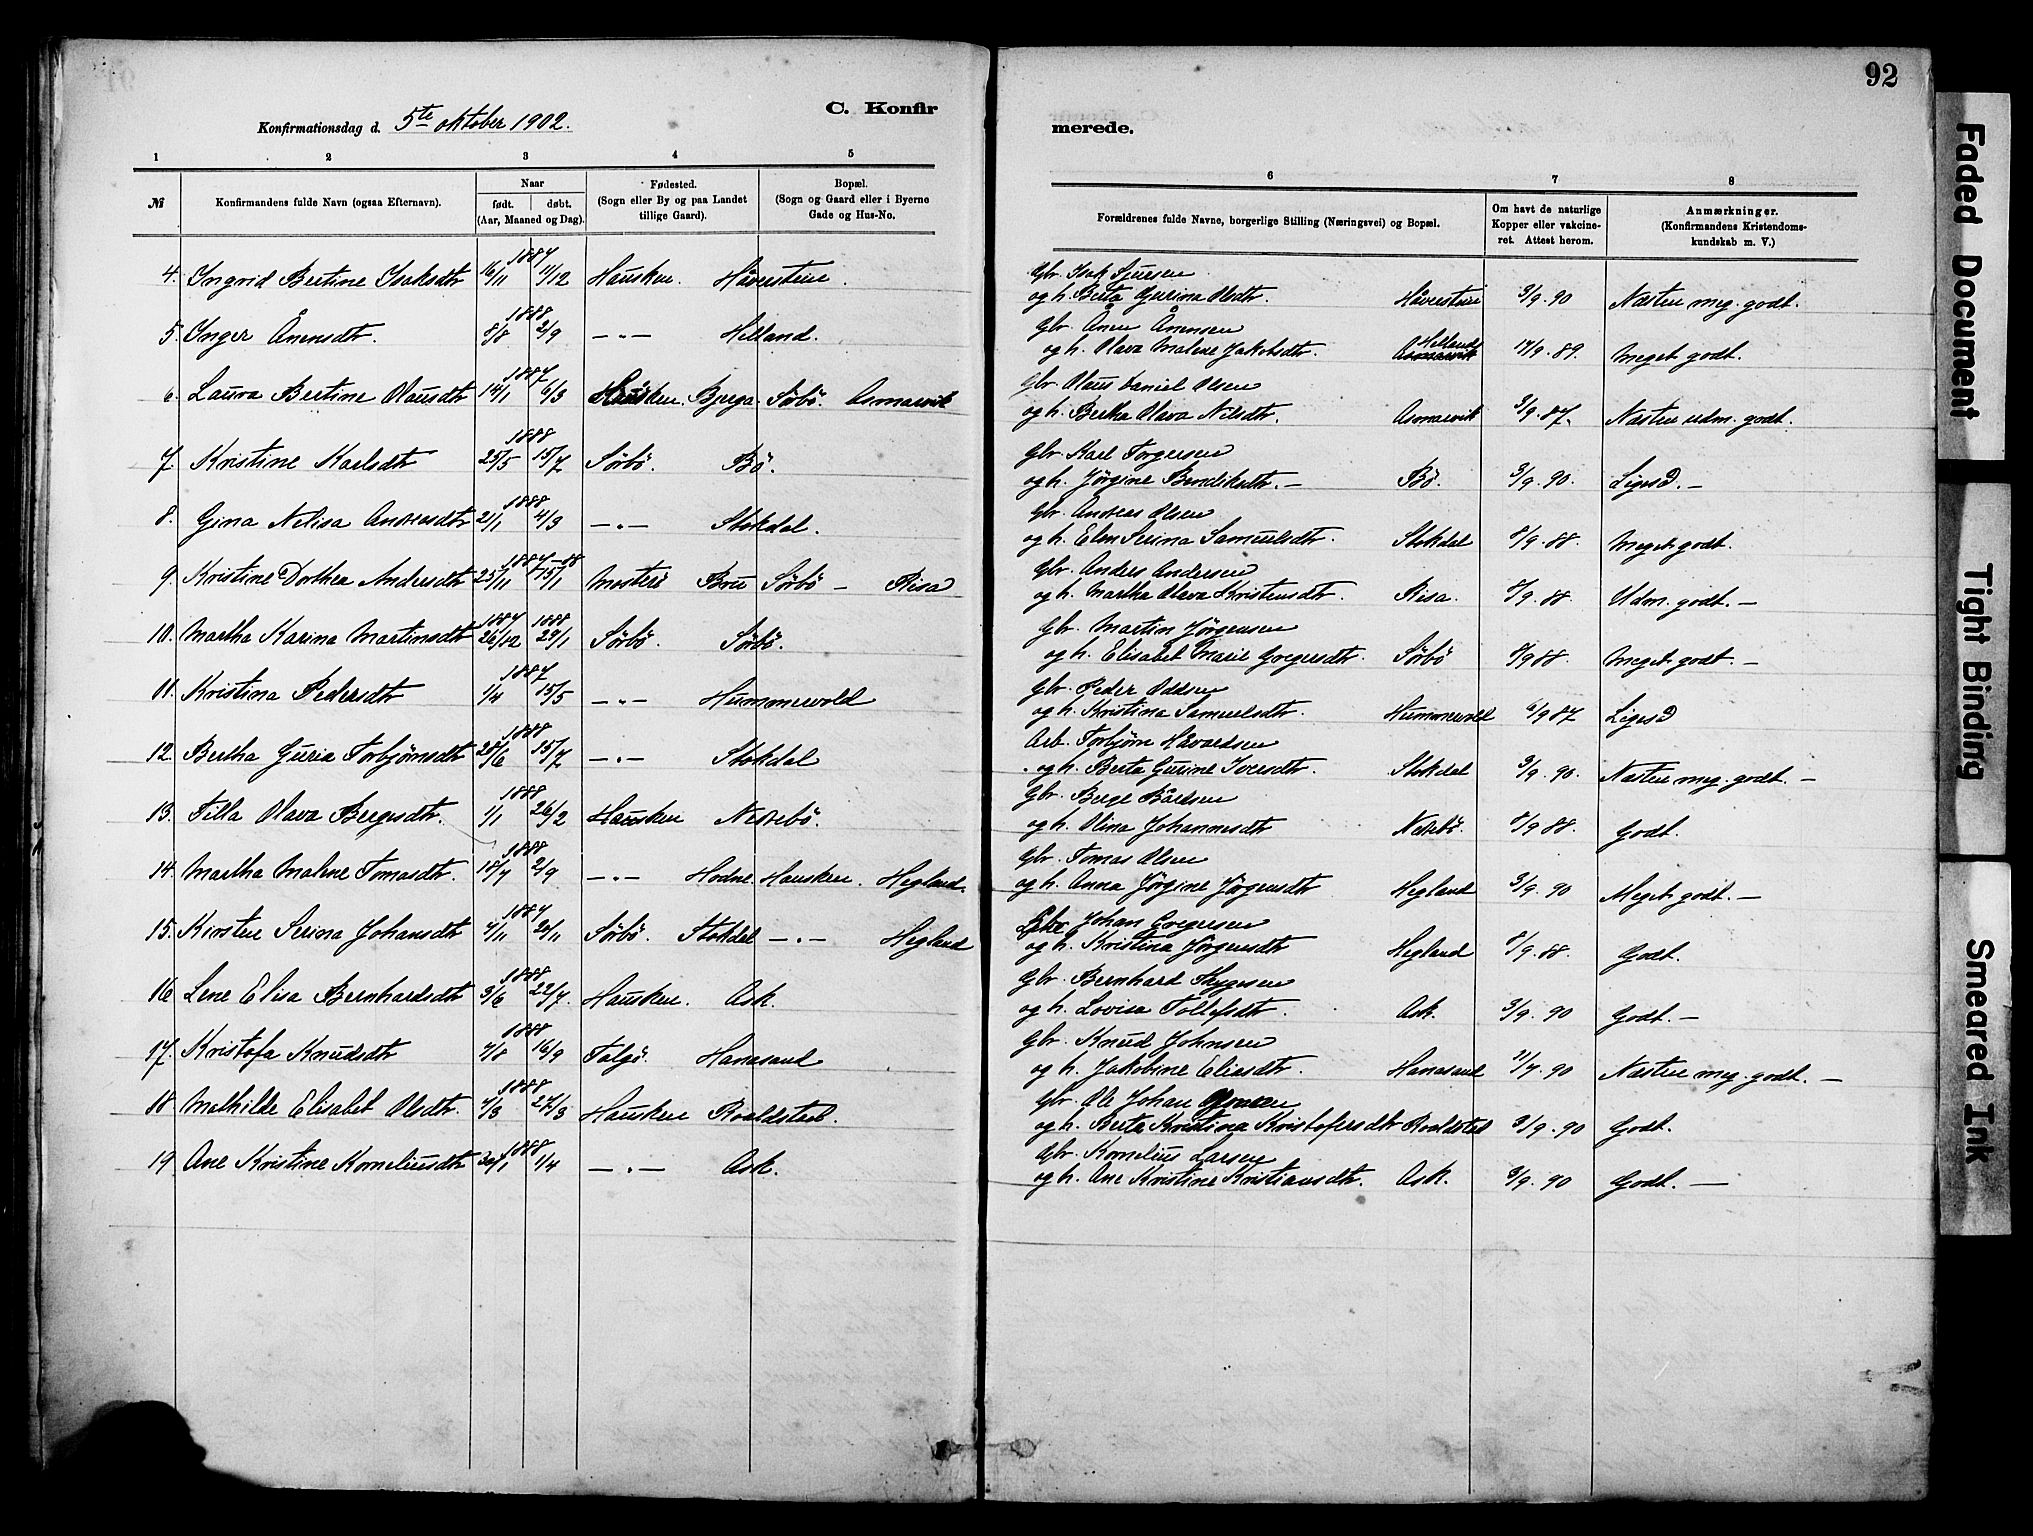 92
C. Konfirmerede.
Konfirmationsdag d. 5te oktober 1902.
1 2 3 4 5 6 7 8
№ Konfirmandens fulde Navn (ogsaa Efternavn). Naar født. døbt. (Aar, Maaned og Dag). Fødested. (Sogn eller By og paa Landet tillige Gaard). Bopæl. (Sogn og Gaard eller i Byerne Gade og Hus-No. Forældrenes fulde Navne, borgerlige Stilling (Næringsvei) og Bopæl. Om havt de naturlige Kopper eller vakcineret. Attest herom. Anmærkninger. (Konfirmandens Kristendomskundskab m. V.)
1887 Gbr. Isak Sjursen
4. Ingrid Bertine Isaksdtr 16/11 11/12 Hausken. Håverstein. og h. Berta Gurina Olsdtr. Håverstein 3/9. 90 Næsten meg. godt.
1888 Gbr. Ånen Ånensen
5. Inger Ånensdtr. 8/8 2/9 —"— Helland. og h. Olava Malene Jakobsdtr. Helland 17/9. 89. Meget godt.
1887 Gbr. Olaus Daniel Olsen
6. Laura Bertine Olausdtr 14/1 6/3 Hausken. Bjerga. Sörbö. Asmarvik og h. Bertha Olava Nilsdtr. Asmarvik 3/9. 87. Næsten udm. godt.
1888 Gbr. Karl Torgersen
7. Kristine Karlsdtr 25/5 15/7 Sörbö. Bö. og h. Jörgine Bendiksdtr. — Bö. 3/9. 90. Ligeså. —
1888 Gbr. Andreas Olsen
8. Gina Nelisa Andreasdtr 21/1 4/3 —"— Stokdal. og h. Elen Serina Samuelsdtr. Stokdal 8/9. 88. Meget godt.
1887—88 Gbr. Anders Andersen
9. Kristine Dorthea Andersdtr 23/11 15/1 Mosterö Bru Sörbö — Risa og h. Martha Olava Kristensdtr. Risa. 8/9. 88. Udm. godt. —
1887 1888 Gbr. Martin Jörgensen
10. Martha Karina Martinsdtr 26/12 29/1 Sörbö. Sörbö. og h. Elisabet Marie Gregersdtr. Sörbö 8/9 88. Meget godt. —
1887 Gbr. Peder Oddsen
11. Kristina Pedersdtr 1/4 15/5 —"— Hummervold og h. Kristina Samuelsdtr. Hummervold 6/9 87 Ligeså
1888 Arb. Torbjörn Håvardsen
12. Bertha Guria Torbjörnsdtr 28/6 15/7 —"— Stokdal og h. Berta Gurine Iversdtr. Stokdal 3/9. 90. Næsten meg. godt. —
1888 Gbr. Berge Bårdsen
13. Tilla Olava Bergesdtr. 1/1 26/2 Hausken Nedrebö. og h. Olina Johannesdtr Nedrebö. 8/9 88. Godt.
1888 Gbr. Tomas Olsen
14. Martha Malene Tomasdtr. 18/7 2/9 —"— Hodne. Hausken. Hegland. og h. Anna Jörgine Jörgensdtr Hegland 3/9. 90 Meget godt. —
1887 Johan Gregersen
15. Kirsten Serina Johansdtr 4/11 20/11 Sörbö. Stokdal —"— Hegland og h. Kristina Jörgensdtr Hegland 8/9. 88. Godt.
1888 Gbr. Bernhard
16. Lene Elisa Bernhardsdtr 3/6 22/7. Hausken. Ask. og h. Lovisa Tollefsdtr. Ask. 3/9. 90 Godt. —
1888 Gbr. Knud Johnsen
17. Kristofa Knudsdtr 7/8 16/9 Talgö. Hanasand og h. Jakobine Eliasdtr. Hanasand 21/7. 90 Næsten meg. godt. —
1888 Gbr. Ole Johan
18. Mathilde Elisabet Olsdtr. 7/3 27/3 Hausken Roaldstad. og h. Berta Kristina Kristofersdtr Roaldstad 3/9. 90 Godt.
1888 Gbr. Kornelius Larsen
19. Ane Kristine Korneliusdtr 1/4 —"— Ask. og h. Ane Kristine Kristiansdtr. Ask. 3/9. 90 Godt. —
Faded Document
Tight Binding
Smeared Ink